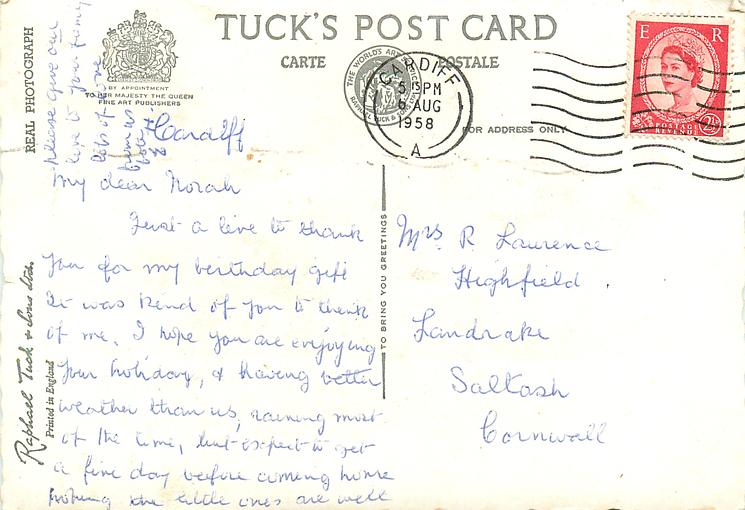 TUCK'S POST CARD
CARTE POSTALE
REAL PHOTOGRAPH
BY APPOINTMENT
TO HER MAJESTY THE QUEEN
FINE ART PUBLISHERS
THE WORLD'S ART SERVICE
RAPHAEL TUCK & SONS LTD
CARDIFF
5 15 PM
6 AUG
1958
A
FOR ADDRESS ONLY
E R
POSTAGE
REVENUE
2½
Please give our
love to your family
lots of love
from us
both
Cardiff
My dear Norah
Just a line to thank
you for my birthday gift
It was kind of you to think
of me. I hope you are enjoying
your holiday, & having better
weather than us, raining most
of the time, but expect to get
a fine day before coming home
hoping the little ones are well
TO BRING YOU GREETINGS
Mrs R Laurence
Highfield
Landrake
Saltash
Cornwall
Raphael Tuck & Sons Ltd.
Printed in England